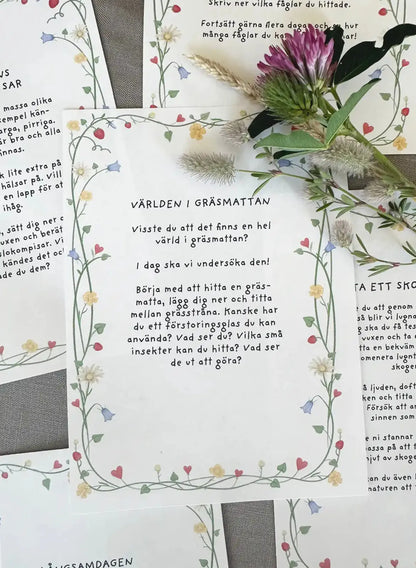 Skriv ner vilka fåglar du hittade.
Fortsätt gärna flera dagar och se hur
många fåglar du kan
US
SAR
massa olika
empel kän-
arga, pirriga.
r bra och alla
innas.
k lite extra på
hälsar på. Vill
en lapp för att
ihåg.
, sätt dig ner o
vuxen och berät
ulokompisar. Vi
kändes det och
ade du dem?
VÄRLDEN I GRÄSMATTAN
Visste du att det finns en hel
värld i gräsmattan?
I dag ska vi undersöka den!
Börja med att hitta en gräs-
matta, lägg dig ner och titta
mellan grässtråna. Kanske har
du ett förstoringsglas du kan
använda? Vad ser du? Vilka små
insekter kan du hitta? Vad ser
de ut att göra?
TA ETT SKO
u att genom
så blir vi lugna
g ska du få tes
vuxen och ta
tta en bekväm
omenera lugnt
skoger
å ljuden, doft
om finns i sko
. Försök att an
skog
e ni stannar
massa på att f
njut av skoge
kan du även l
naturen att
ÅNGSAMDAGEN